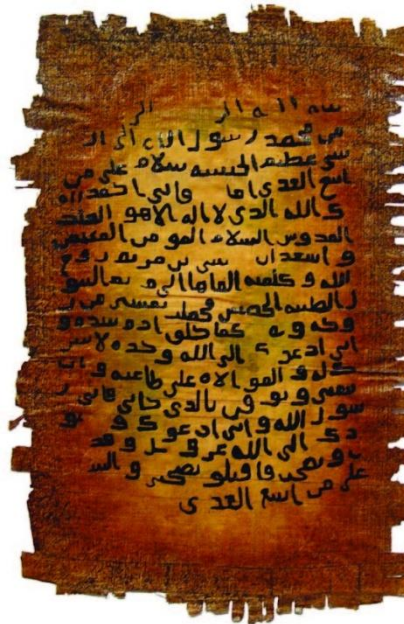 الله الر الر
من محمد رسول الله الى ال
شي عظيم الحبشه سلام على من
اتبع الهدى اما فاني احمد ال
ك الله الذي لا اله الا هو الملك
القدوس السلام المومن المهيمن
و اشهد ان سى بن مريم روح
الله و كلمته القاها الى م يم البتو
ل الطيبه الحصينه فحملت بعيسى من ر
وحه و كما خلق ادم بيده و
اني ادعو ك الى الله وحده لا شر
يك له و الموالاه على طاعته و ان ت
تبعني و تو قن بالذي جاني فاني ر
سول الله و اني ادعو ك و نو
دك الى الله عز و جل و قد
ت و نصحت فاقبلو نصيحتي و الس
على من اتبع الهدى